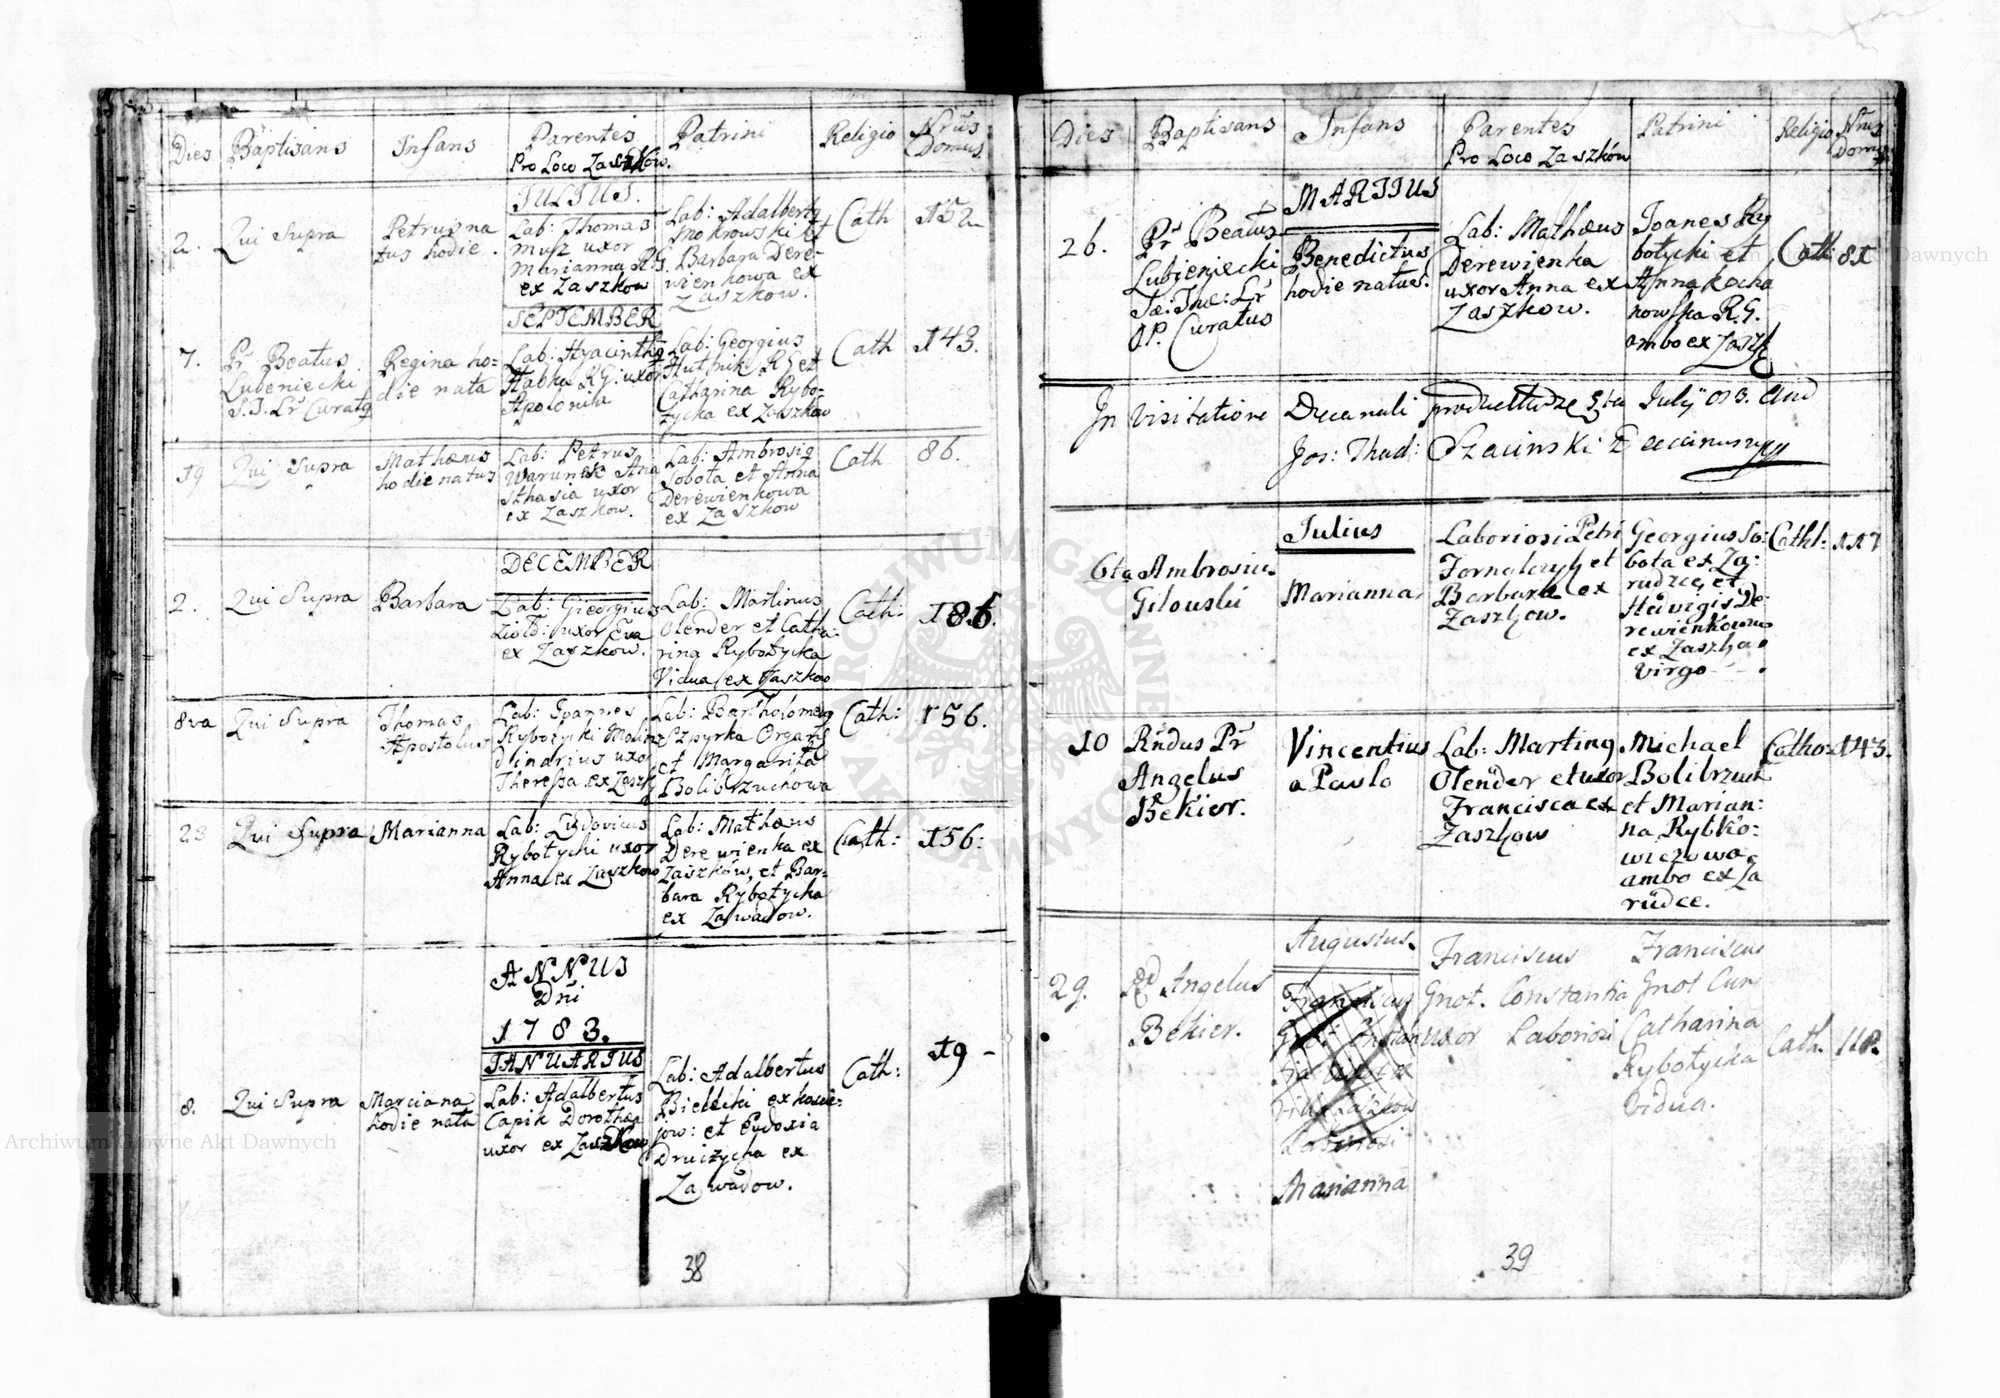 Dies Baptisans Infans Parentes Patrini Religio Nrus Domus.
Pro Loco Zaszków.
JULIUS.
2. Qui Supra Petrus na
tus hodie.
Lab: Thomas
uxor
Marianna R.G.
ex Zaszkow
Lab: Adalberty
Mokrowski et
Barbara Dere-
wienkowa ex
Zaszkow.
Cath 152
SEPTEMBER
7. Pr Beatus
Lubeniecki
S.T. Lr Curatq
Regina ho=
die nata
Lab: Hyacinthq
Habka R.G. uxor
Apolonia
Lab: Georgius
Hutnik R.G et
Catharina Rybo-
tycka ex Zaszkow
Cath 143.
19 Qui Supra Mathæus
hodie natus
Lab: Petrus
Ana
sthasia uxor
ex Zaszkow.
Lab: Ambrosiq
Sobota et Anna
Derewienkowa
ex Zaszkow
Cath 86.
DECEMBER
2. Qui Supra Barbara
Lab: Gieorgius
uxor Eva
ex Zaszkow.
Lab: Martinus
Olender et Catha-
rina Rybotycka
Vidua ex Zaszkow
Cath: 186.
8va Qui Supra Thomas
Apostolus
Lab: Joannes
Rybotycki Molin
dinarius uxor
Theressa ex Zaszk
Lab: Bartholomeq
Szpyrka Organ
et Margarita
Bolibrzuchowa
Cath: 156.
23 Qui Supra Marianna
Lab: Ludovicus
Rybotycki uxor
Anna ex Zaszkow
Lab: Mathæus
Derewienka ex
Zaszków, et Bar-
bara Rybotycka
ex Zawadow.
Cath: 156:
ANNUS
Dni
1783.
JANUARIUS
8. Qui Supra Marciana
hodie nata
Lab: Adalbertus
Capik Dorothea
uxor ex Zaszkow
Lab: Adalbertus
Bieliki ex
jow: et Eudoxia
Druczycka ex
Zawadow.
Cath: 19 -
38
Dies Baptisans Infans Parentes Patrini Religio Nrus Domus
Pro Loco Zaszków
MARTIUS
26. Pr Beatus
Lubieniecki
Lr
Curatus
Benedictus
hodie natus.
Lab: Mathæus
Derewienka
uxor Anna ex
Zaszkow.
Joanes Ry
botycki et
Anna Kocha
nowska R.G.
ambo ex Zaszk
Cath: 81
In Visitatione Decanali die 5ta July 783.
Jos: Thad: Szacinski
Julius
6ta Ambrosius
Gilouski
Marianna
Laboriosi Petri
Fornalczyk et
Barbara ex
Zaszkow.
Georgius So:
bota ex Za:
rudzcę et
Hedvigis De:
rewienkowna
ex Zaszko
Virgo
Cathl: 117
10 Rndus Pr
Angelus
Bekier.
Vincentius
a Paulo
Lab: Martinq
Olender et uxor
Francisca ex
Zaszkow
Michael
Bolibrzuch
et Marian:
na Rybko:
wiczowa
ambo ex Za
rudce.
Catho: 143.
Augustus.
29. Rd Angelus
Bekier.
Marianna
Franciscus
Gnot. Constantia
uxor Laboriosi
Franciscus
Gnot Cum
Catharina
Rybotycka
Vidua.
Cath. 118.
39
Archiwum Główne Akt Dawnych
ARCHIWUM GŁÓWNE AKT DAWNYCH